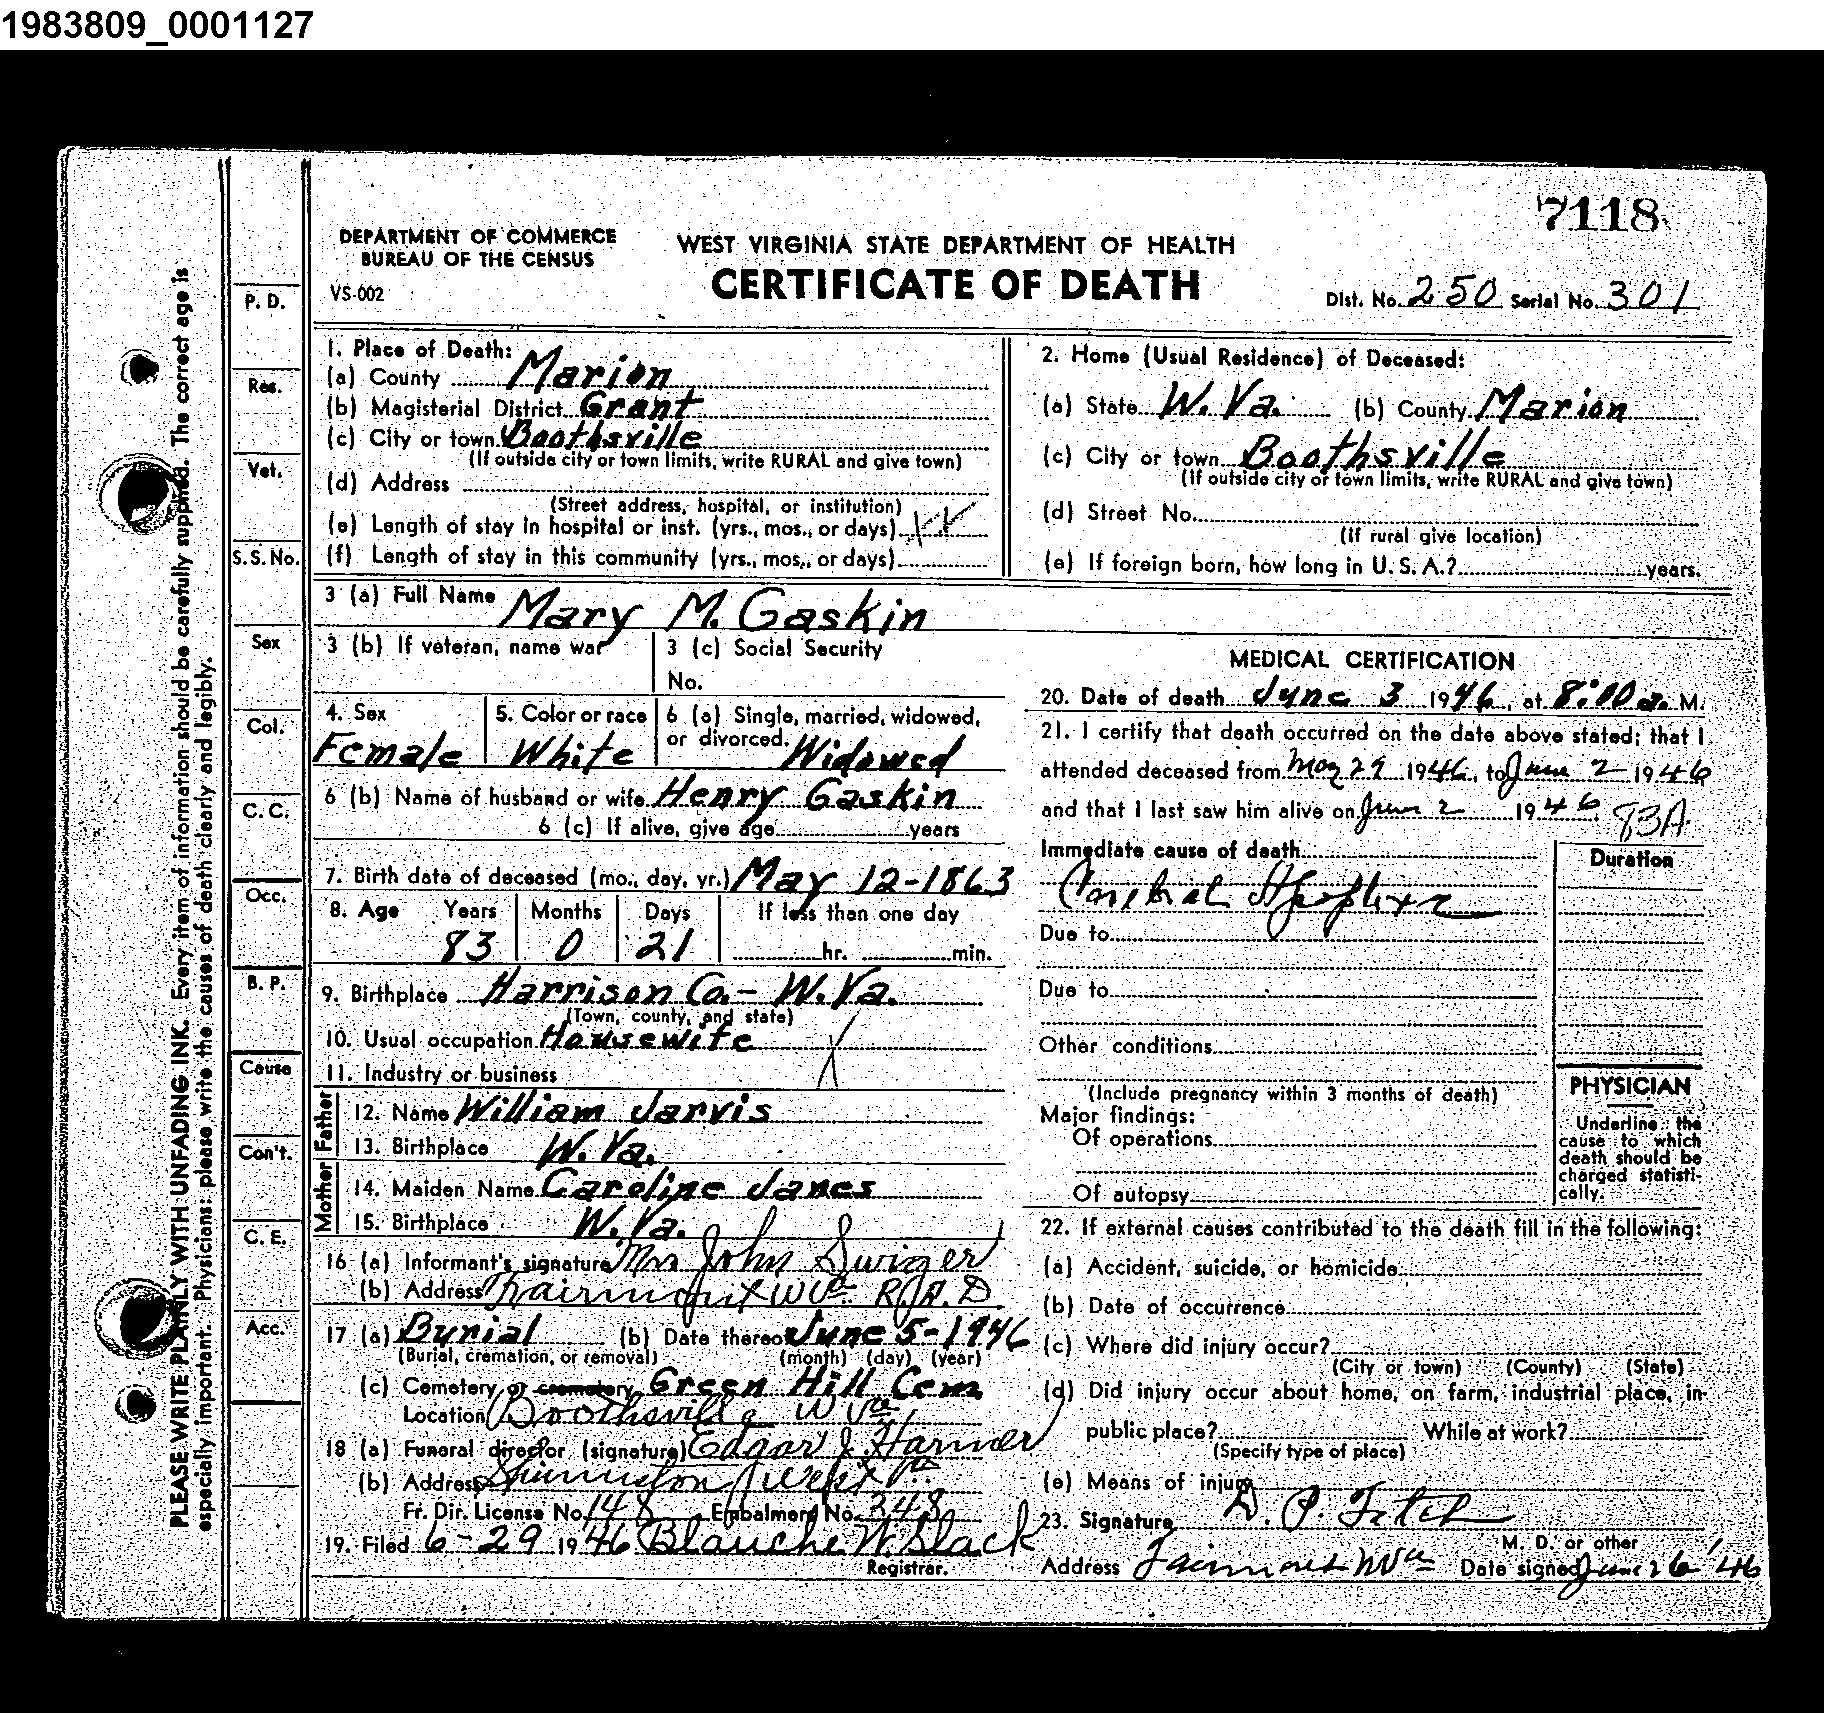 1983809_0001127
7118
DEPARTMENT OF COMMERCE
BUREAU OF THE CENSUS
VS-002
WEST VIRGINIA STATE DEPARTMENT OF HEALTH
CERTIFICATE OF DEATH
Dist. No. 250 Serial No. 301
PLEASE WRITE PLAINLY WITH UNFADING INK. Every item of information should be carefully supplied. The correct age is
especially important. Physicians: please write the causes of death clearly and legibly.
P. D.
Res.
Vet.
S.S. No.
Sex
Col.
C. C.
Occ.
B. P.
Cause
Con't.
C. E.
Acc.
1. Place of Death:
(a) County Marion
(b) Magisterial District Grant
(c) City or town Boothsville
(If outside city or town limits, write RURAL and give town)
(d) Address
(Street address, hospital, or institution)
(e) Length of stay in hospital or inst. (yrs., mos., or days)
(f) Length of stay in this community (yrs., mos., or days)
2. Home (Usual Residence) of Deceased:
(a) State W. Va. (b) County Marion
(c) City or town Boothsville
(If outside city or town limits, write RURAL and give town)
(d) Street No.
(If rural give location)
(e) If foreign born, how long in U. S. A.? years.
3 (a) Full Name Mary M. Gaskin
3 (b) If veteran, name war
3 (c) Social Security
No.
4. Sex
Female
5. Color or race
White
6 (a) Single, married, widowed,
or divorced. Widowed
6 (b) Name of husband or wife Henry Gaskin
6 (c) If alive, give age years
7. Birth date of deceased (mo., day, yr.) May 12-1863
8. Age Years Months Days If less than one day
83 0 21 hr. min.
9. Birthplace Harrison Co.- W. Va.
(Town, county, and state)
10. Usual occupation Housewife
11. Industry or business
Father
12. Name William Jarvis
13. Birthplace W. Va.
Mother
14. Maiden Name Caroline Janes
15. Birthplace W. Va.
16 (a) Informant's signature Mrs John Swiger
(b) Address Fairmont W Va. R.F.D.
17 (a) Burial (b) Date thereof June 5-1946
(Burial, cremation, or removal) (month) (day) (year)
(c) Cemetery or crematory Green Hill Cem
Location Boothsville W Va
18 (a) Funeral director (signature) Edgar J. Harmer
(b) Address Shinnston West Va.
Fr. Dir. License No. 148 Embalmers No. 348
19. Filed 6-29 1946 Blanche W. Slack
Registrar.
MEDICAL CERTIFICATION
20. Date of death June 3 1946, at 8:00 a. M.
21. I certify that death occurred on the date above stated; that I
attended deceased from May 29 1946, to June 2 1946
and that I last saw him alive on June 2 1946
83A
Immediate cause of death
Duration
Cerebral
Due to
Due to
Other conditions
(Include pregnancy within 3 months of death)
Major findings:
Of operations
Of autopsy
PHYSICIAN
Underline the
cause to which
death should be
charged statisti-
cally.
22. If external causes contributed to the death fill in the following:
(a) Accident, suicide, or homicide
(b) Date of occurrence
(c) Where did injury occur?
(City or town) (County) (State)
(d) Did injury occur about home, on farm, industrial place, in
public place? While at work?
(Specify type of place)
(e) Means of injury
23. Signature D. P. Fitch
M. D. or other
Address Fairmont W Va Date signed June 26 '46